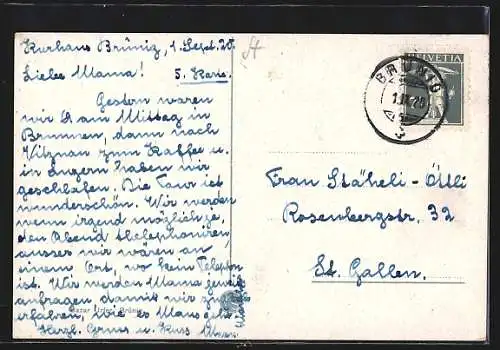 Kurhaus Brünig, 1. Sept. 20.
Liebe Mama!
5. Karte.
Gestern waren
wir am Mittag in
Brunnen, dann nach
Vitznau zum Kaffee u.
in Luzern haben wir
geschlafen. Die Tour ist
wunderschön. Wir werden
wenn irgend möglich je-
den Abend thelephoniren,
ausser wir wären an
einem Ort, wo kein Telephon
ist. Wir werden Mama
anfragen damit wir
erfahren, wie es Mama geht.
Herzl. Gruss u. Kuss
HELVETIA
BRÜNIG
Frau Stäheli-Öttli
Rosenbergstr. 32
St. Gallen.